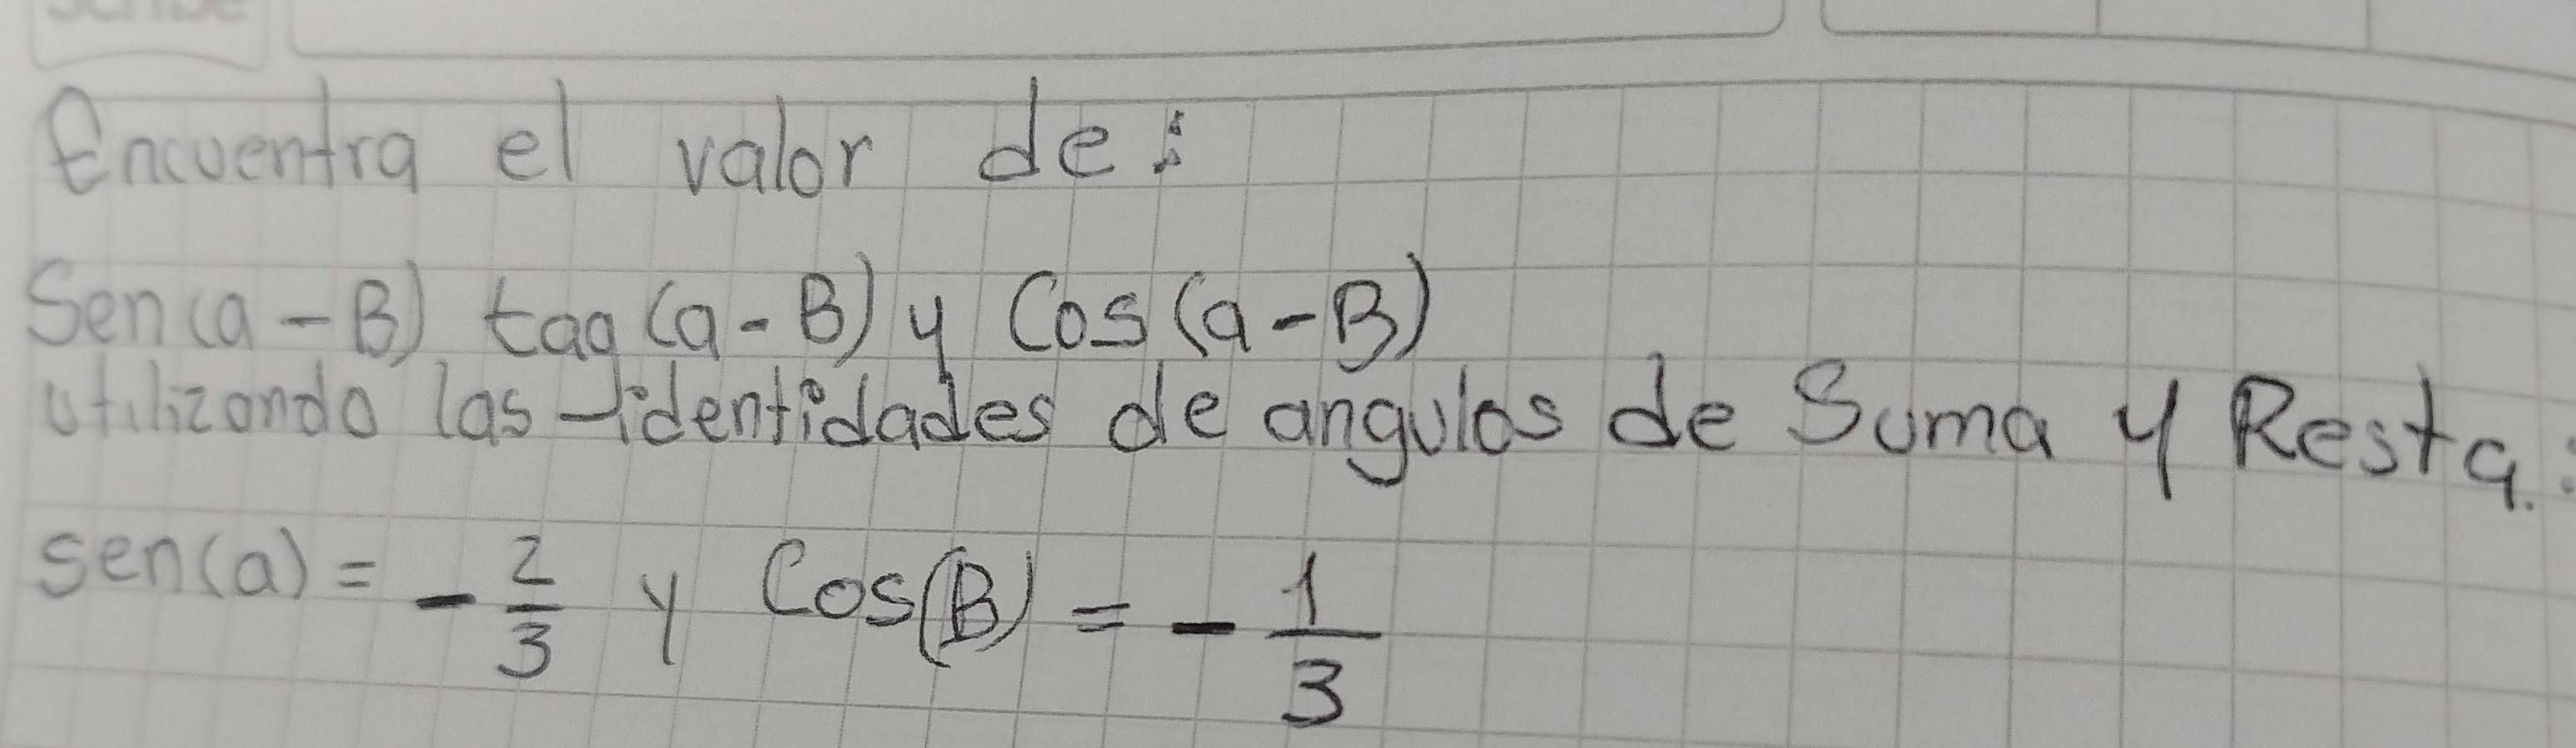 Encuentra el valor de:
Sen(a-B) tag(a-B) y Cos(a-B)
utilizando las identidades de angulos de Suma y Resta.:
sen(a) = - 2/3 y Cos(B) = - 1/3